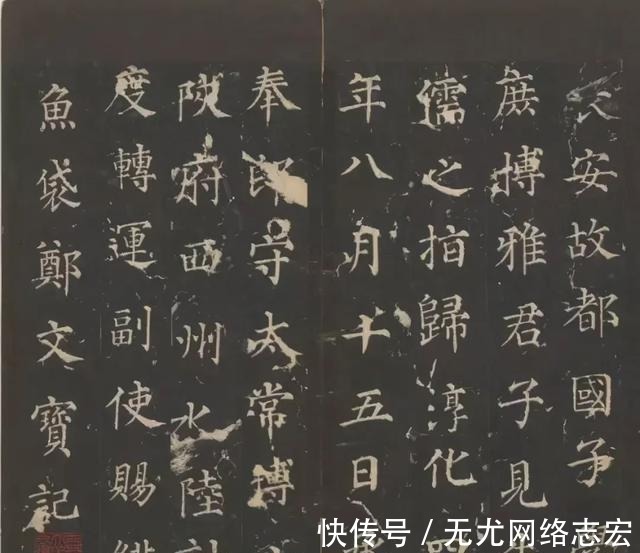 安故都國子
庶博雅君子見
儒之指歸淳化
年八月十五日
奉郎守太常博
陝府西州水陸
度轉運副使賜
魚袋鄭文寶記
快传号/无尤网络志宏